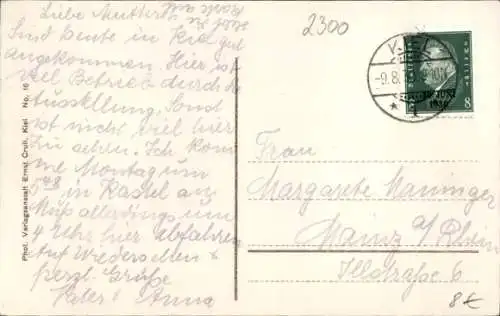 Liebe Mutter
Sind heute in Kiel gut
angekommen. Hier ist
viel Betrieb durch die
Ausstellung. Sonst
ist nicht viel hier
zu sehen. Ich kom
me Montag um
5 48 in Kastel an
Muß allerdings um
4 Uhr hier abfahren
Auf Wiedersehen &
herzl. Grüße
Vater & Anna
Phot. Verlagsanstalt Ernst Cruß, Kiel No. 16
2300
-9.8.
8
Frau
Margarete Maninger
Mainz a/Rhein
Illstraße 6
8€